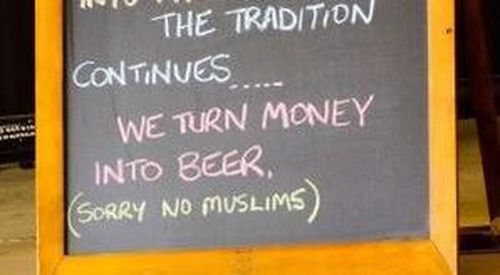 INTO
THE TRADITION
CONTINUES.....
WE TURN MONEY
INTO BEER.
(SORRY NO MUSLIMS)